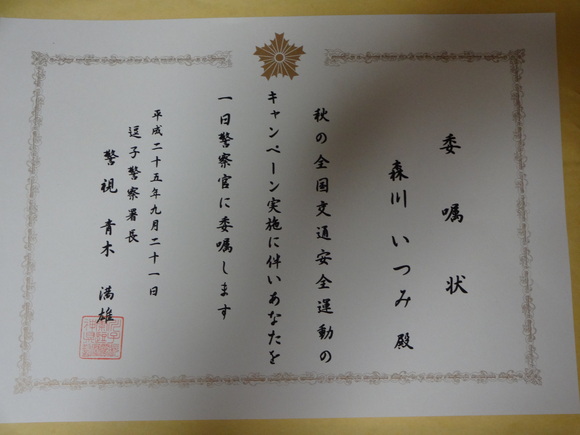 委嘱状
森川いつみ殿
秋の全国交通安全運動の
キャンペーン実施に伴いあなたを
一日警察官に委嘱します
平成二十五年九月二十一日
逗子警察署長
警視 青木 満雄